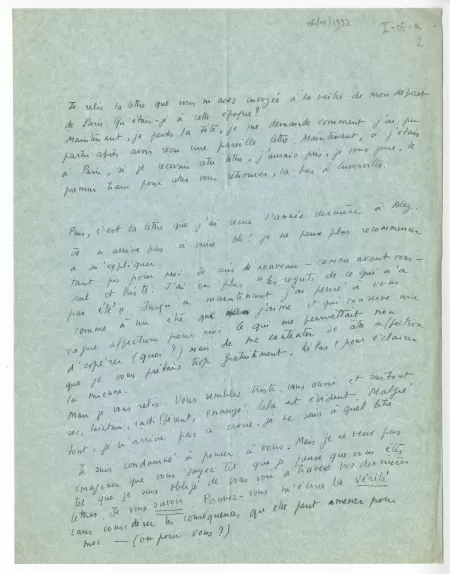 I-05-a
2
Je relis la lettre que vous m'avez envoyée à la veille de mon départ
de Paris. Qu'étais-je à cette époque?
Maintenant, je perds la tête, je me demande comment j'ai pu
partir après avoir reçu une pareille lettre. Maintenant, si j'étais
à Paris, si je recevais cette lettre, j'aurais pris, je vous jure, le
premier train pour aller vous retrouver, là bas à
Puis, c'est la lettre que j'ai reçue l'année dernière à
Je n'arrive pas à croire oh! je ne peux plus recommencer
à m'expliquer.
Tant pis pour moi. Je suis de nouveau – comme avant vous –
seul et triste. J'ai en plus "les regrets de ce qui n'a
pas été". Jusqu'à maintenant j'ai pensé à vous
comme à un être que j'aime et qui conserve une
vague affection pour moi. Ce qui me permettait non
d'espérer (quoi?) mais de me contenter de cette affection
que je vous prêtais trop gratuitement. Hélas! pour éclairer
la mienne.
Mais je vous relis. Vous semblez triste vous aussi et surtout
sec, lointain, indifférent, ennuyé. Cela est évident. Malgré
tout, je n'arrive pas à croire, je ne sais à quel titre
Je suis condamné à penser à vous. Mais je ne veux pas
imaginer que vous soyez tel que je pense que vous êtes,
tel que je suis obligé de vous voir à travers vos dernières
lettres. Je veux savoir. Pouvez-vous m'écrire la vérité
sans considérer les conséquences qu'elle peut amener pour
moi — (ou pour vous?)